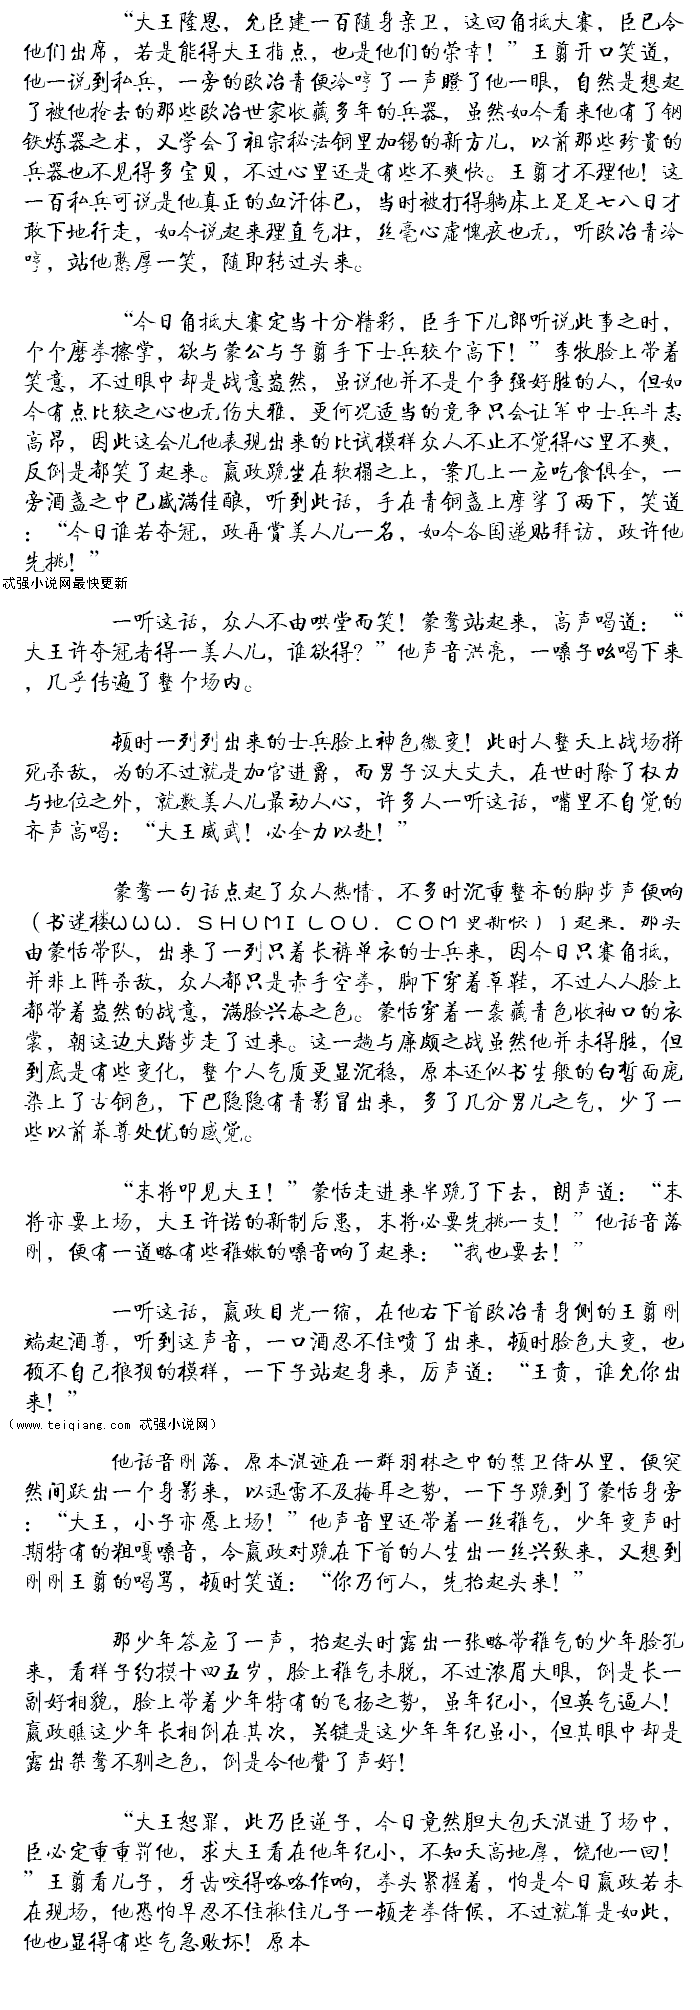 “大王隆恩，允臣建一百随身亲卫，这回角抵大赛，臣已令
他们出席，若是能得大王指点，也是他们的荣幸！”王翦开口笑道，
他一说到私兵，一旁的欧冶青便冷哼了一声瞪了他一眼，自然是想起
了被他抢去的那些欧冶世家收藏多年的兵器，虽然如今看来他有了钢
铁炼器之术，又学会了祖宗秘法铜里加锡的新方儿，以前那些珍贵的
兵器也不见得多宝贝，不过心里还是有些不爽快。王翦才不理他！这
一百私兵可说是他真正的血汗体已，当时被打得躺床上足足七八日才
敢下地行走，如今说起来理直气壮，丝毫心虚愧疚也无，听欧冶青冷
哼，站他憨厚一笑，随即转过头来。
“今日角抵大赛定当十分精彩，臣手下儿郎听说此事之时，
个个磨拳擦掌，欲与蒙公与子翦手下士兵较个高下！”李牧脸上带着
笑意，不过眼中却是战意盎然，虽说他并不是个争强好胜的人，但如
今有点比较之心也无伤大雅，更何况适当的竞争只会让军中士兵斗志
高昂，因此这会儿他表现出来的比试模样众人不止不觉得心里不爽，
反倒是都笑了起来。嬴政跪坐在软榻之上，案几上一应吃食俱全，一
旁酒盏之中已盛满佳酿，听到此话，手在青铜盏上摩挲了两下，笑道
：“今日谁若夺冠，政再赏美人儿一名，如今各国递贴拜访，政许他
先挑！”
忒强小说网最快更新
一听这话，众人不由哄堂而笑！蒙骜站起来，高声喝道：“
大王许夺冠者得一美人儿，谁欲得？”他声音洪亮，一嗓子吆喝下来
，几乎传遍了整个场内。
顿时一列列出来的士兵脸上神色微变！此时人整天上战场拼
死杀敌，为的不过就是加官进爵，而男子汉大丈夫，在世时除了权力
与地位之外，就数美人儿最动人心，许多人一听这话，嘴里不自觉的
齐声高喝：“大王威武！必全力以赴！”
蒙骜一句话点起了众人热情，不多时沉重整齐的脚步声便响
（书迷楼ＷＷＷ．ＳＨＵＭＩＬＯＵ．ＣＯＭ更新快））起来，那头
由蒙恬带队，出来了一列只着长裤单衣的士兵来，因今日只赛角抵，
并非上阵杀敌，众人都只是赤手空拳，脚下穿着草鞋，不过人人脸上
都带着盎然的战意，满脸兴奋之色。蒙恬穿着一袭藏青色收袖口的衣
裳，朝这边大踏步走了过来。这一趟与廉颇之战虽然他并未得胜，但
到底是有些变化，整个人气质更显沉稳，原本还似书生般的白皙面庞
染上了古铜色，下巴隐隐有青影冒出来，多了几分男儿之气，少了一
些以前养尊处优的感觉。
“末将叩见大王！”蒙恬走进来半跪了下去，朗声道：“末
将亦要上场，大王许诺的新制后患，末将必要先挑一支！”他话音落
刚，便有一道略有些稚嫩的嗓音响了起来：“我也要去！”
一听这话，嬴政目光一缩，在他右下首欧冶青身侧的王翦刚
端起酒尊，听到这声音，一口酒忍不住喷了出来，顿时脸色大变，也
顾不自己狼狈的模样，一下子站起身来，厉声道：“王贲，谁允你出
来！”
（www.teiqiang.com 忒强小说网）
他话音刚落，原本混迹在一群羽林之中的禁卫侍从里，便突
然间跃出一个身影来，以迅雷不及掩耳之势，一下子跪到了蒙恬身旁
：“大王，小子亦愿上场！”他声音里还带着一丝稚气，少年变声时
期特有的粗嘎嗓音，令嬴政对跪在下首的人生出一丝兴致来，又想到
刚刚王翦的喝骂，顿时笑道：“你乃何人，先抬起头来！”
那少年答应了一声，抬起头时露出一张略带稚气的少年脸孔
来，看样子约摸十四五岁，脸上稚气未脱，不过浓眉大眼，倒是长一
副好相貌，脸上带着少年特有的飞扬之势，虽年纪小，但英气逼人！
嬴政瞧这少年长相倒在其次，关键是这少年年纪虽小，但其眼中却是
露出桀骜不驯之色，倒是令他赞了声好！
“大王恕罪，此乃臣逆子，今日竟然胆大包天混进了场中，
臣必定重重罚他，求大王看在他年纪小，不知天高地厚，饶他一回！
”王翦看儿子，牙齿咬得咯咯作响，拳头紧握着，怕是今日嬴政若未
在现场，他恐怕早忍不住揪住儿子一顿老拳侍候，不过就算是如此，
他也显得有些气急败坏！原本